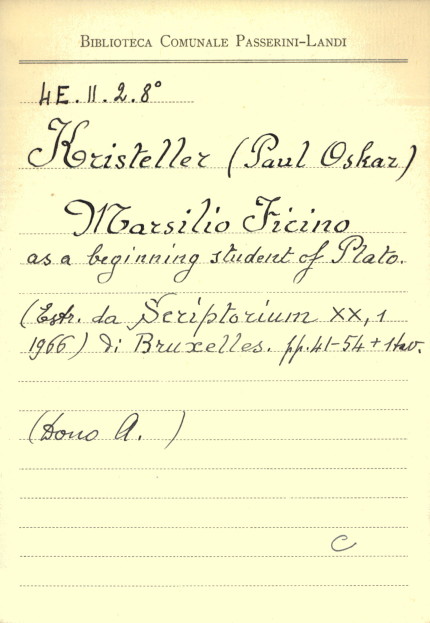 BIBLIOTECA COMUNALE PASSERINI-LANDI
4E.II.2.8°
Kristeller (Paul Oskar)
Marsilio Ficino
as a beginning student of Plato.
(Estr. da Scriptorium XX, 1
1966) di Bruxelles. pp. 41-54 + 1 tav.
(Dono A. )
C